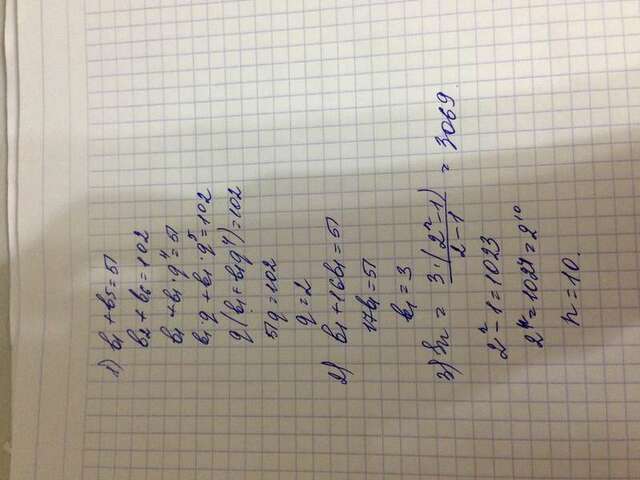 1) b₁ + b₅ = 51
b₂ + b₆ = 102
b₁ + b₁·q⁴ = 51
b₁·q + b₁·q⁵ = 102
q(b₁ + b₁q⁴) = 102
51q = 102
q = 2
2) b₁ + 16b₁ = 51
17b₁ = 51
b₁ = 3
3) Sn = 3·(2ⁿ - 1) / 2 - 1 = 3069.
2ⁿ - 1 = 1023
2ⁿ = 1024 = 2¹⁰
n = 10.